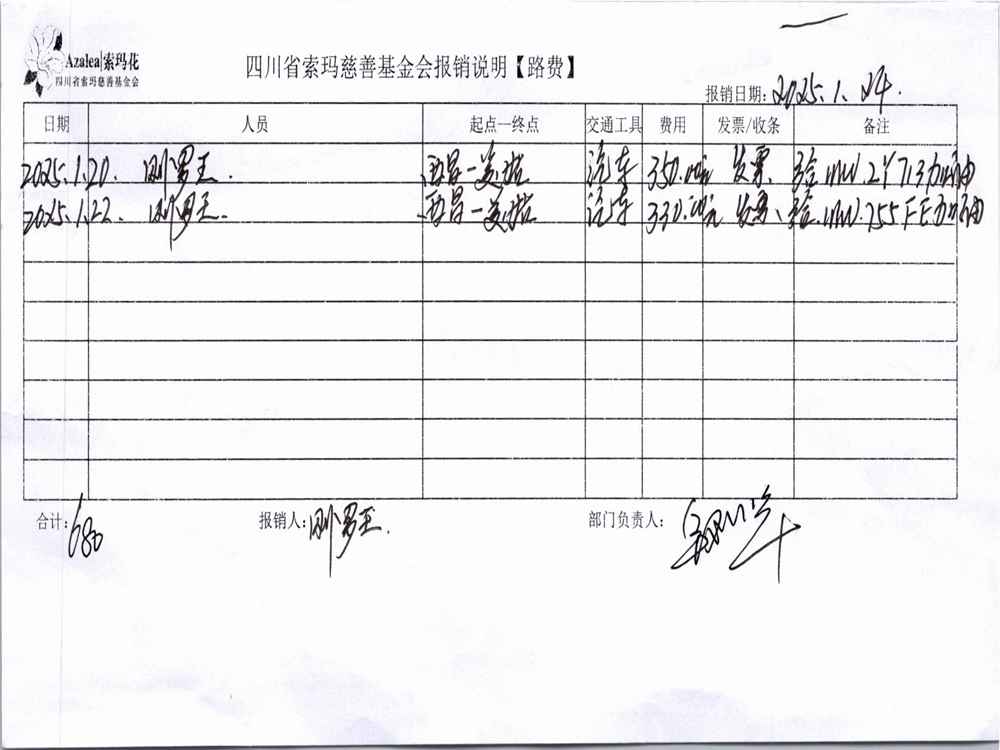 Azalea|索玛花
四川省索玛慈善基金会
四川省索玛慈善基金会报销说明【路费】
报销日期：2025.1.24.
日期 人员 起点—终点 交通工具 费用 发票/收条 备注
2025.1.20. 罗王 西昌—美姑 汽车 350.00元 发票 加油
2025.1.22. 罗王. 西昌—美姑 汽车 330.00元 发票、 加油
合计：680 报销人：罗王. 部门负责人：